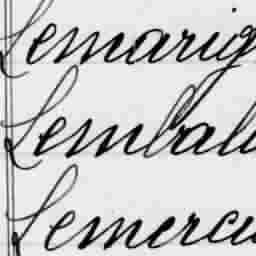 Lemarig
Lembal
Lemercu